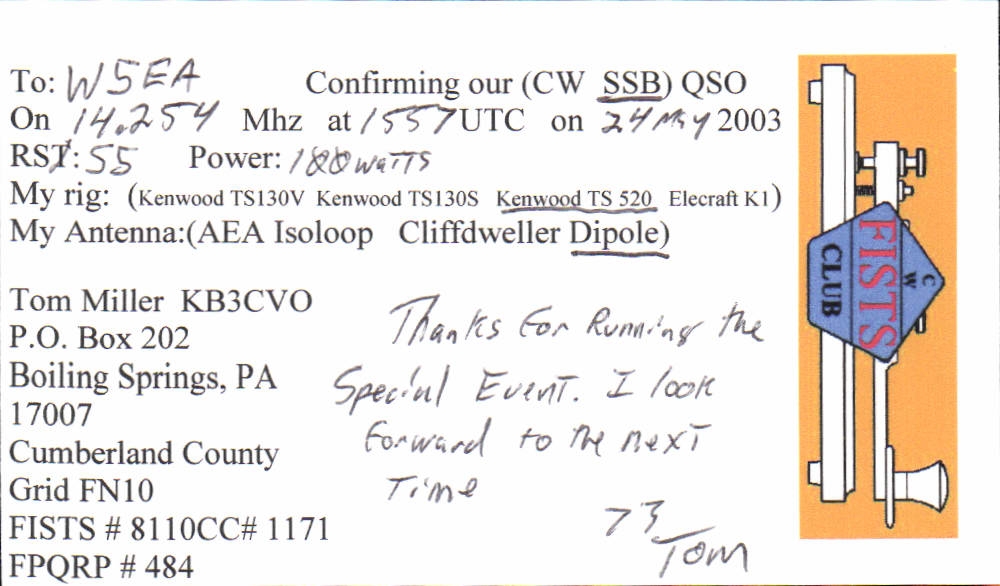 To: W5EA Confirming our (CW SSB) QSO
On 14.254 Mhz at 1557 UTC on 24 May 2003
RST: 55 Power: 100 watts
My rig: (Kenwood TS130V Kenwood TS130S Kenwood TS 520 Elecraft K1)
My Antenna:(AEA Isoloop Cliffdweller Dipole)
Tom Miller KB3CVO
P.O. Box 202
Boiling Springs, PA
17007
Cumberland County
Grid FN10
FISTS # 8110CC# 1171
FPQRP # 484
Thanks for Running the
Special Event. I look
forward to the next
Time
73
Tom
CW
FISTS
CLUB